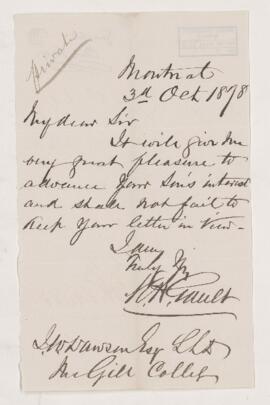 Private
Montreal
3d Oct 1878
My dear Sir
It will give me
very great pleasure to
advance your Son's interest
and shall not fail to
keep your letter in view -
I am
Truly Yrs
J W Dawson Esq LLD
McGill College